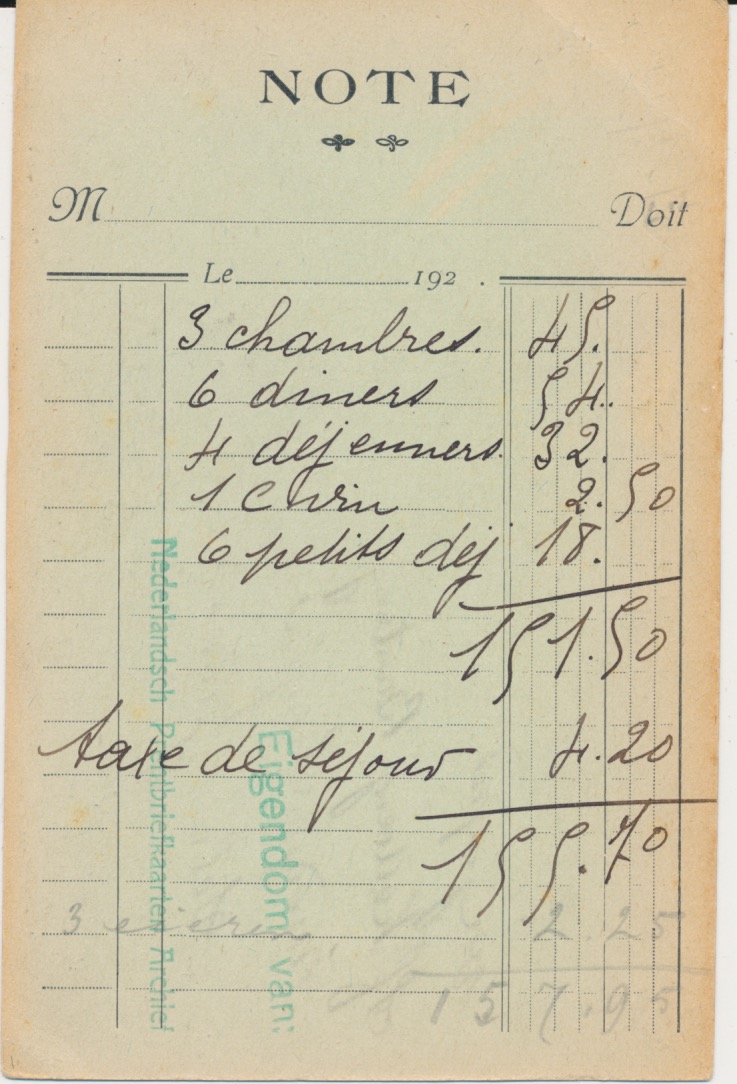 NOTE
M Doit
Le 192 .
3 chambres. 45.
6 diners 54.
4 déjeunners. 32.
1 C vin 2.50
6 petits déj 18.
151.50
taxe de séjour 4.20
155.70
3 eieren 2.25
157.95
Eigendom van:
Nederlandsch Poststbriefkaarten Archief